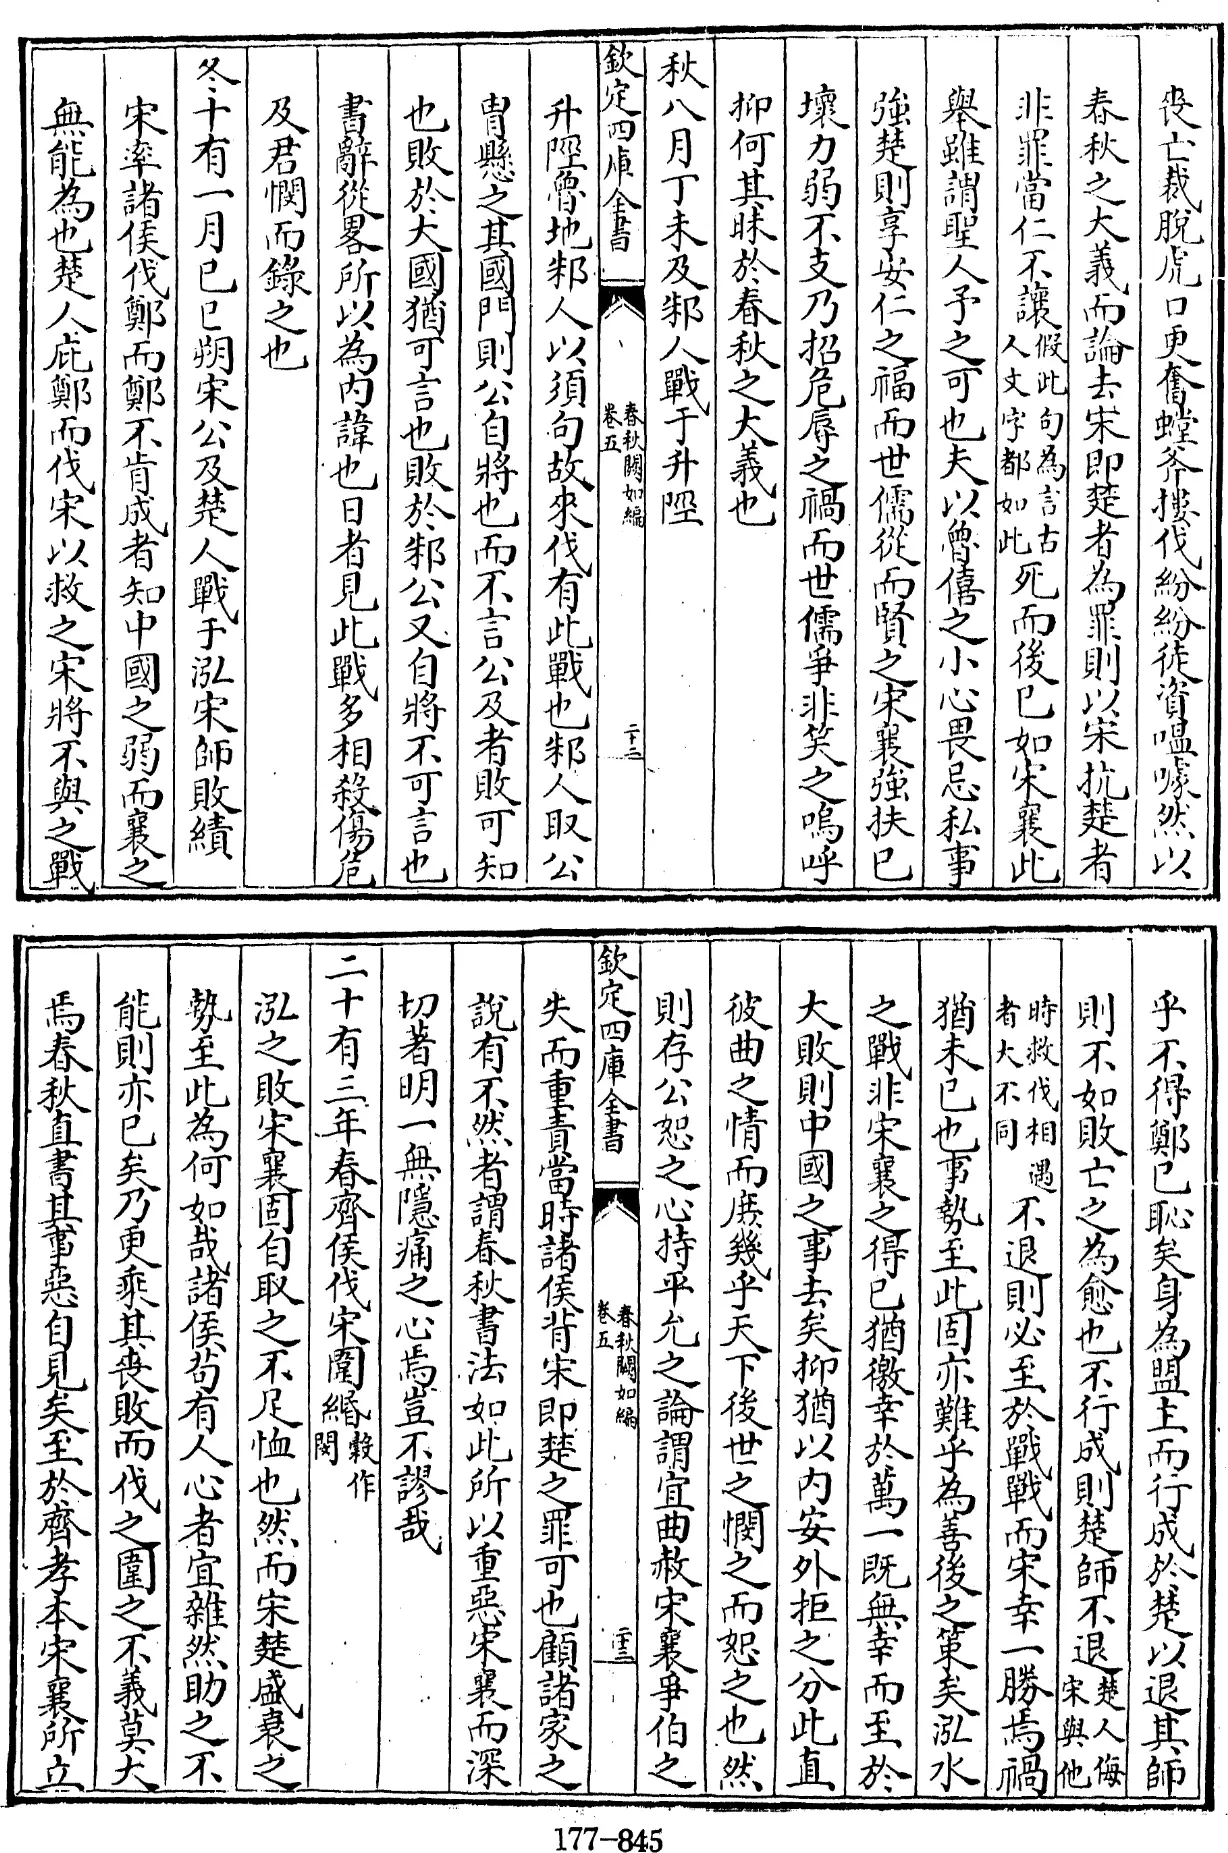 喪亡裁脫虎口更奮螳斧摟伐紛紛徒資嗢噱然以
春秋之大義而論去宋即楚者為罪則以宋抗楚者
非罪當仁不讓假此句為言古人文字都如此死而後已如宋襄此
舉雖謂聖人予之可也夫以魯僖之小心畏忌私事
強楚則享安仁之福而世儒從而賢之宋襄強扶已
壞力弱不支乃招危辱之禍而世儒爭非笑之嗚呼
抑何其昧於春秋之大義也
秋八月丁未及邾人戰于升陘
欽定四庫全書
春秋闕如編
卷五
二十二
升陘魯地邾人以須句故來伐有此戰也邾人取公
胄懸之其國門則公自將也而不言公及者敗可知
也敗於大國猶可言也敗於邾公又自將不可言也
書辭從畧所以為內諱也日者見此戰多相殺傷危
及君憫而錄之也
冬十有一月己巳朔宋公及楚人戰于泓宋師敗績
宋率諸侯伐鄭而鄭不肯成者知中國之弱而襄之
無能為也楚人庇鄭而伐宋以救之宋將不與之戰
乎不得鄭已恥矣身為盟主而行成於楚以退其師
則不如敗亡之為愈也不行成則楚師不退楚人侮宋與他
時救伐相遇者大不同不退則必至於戰戰而宋幸一勝焉禍
猶未已也事勢至此固亦難乎為善後之策矣泓水
之戰非宋襄之得已猶徼幸於萬一既無幸而至於
大敗則中國之事去矣抑猶以內安外拒之分此直
彼曲之情而庶幾乎天下後世之憫之而恕之也然
則存公恕之心持平允之論謂宜曲赦宋襄爭伯之
欽定四庫全書
春秋闕如編
卷五
二十三
失而重責當時諸侯背宋即楚之罪可也顧諸家之
說有不然者謂春秋書法如此所以重惡宋襄而深
切著明一無隱痛之心焉豈不謬哉
二十有三年春齊侯伐宋圍緡穀作閔
泓之敗宋襄固自取之不足恤也然而宋楚盛衰之
勢至此為何如哉諸侯茍有人心者宜雜然助之不
能則亦已矣乃更乘其喪敗而伐之圍之不義莫大
焉春秋直書其事惡自見矣至於齊孝本宋襄所立
177-845